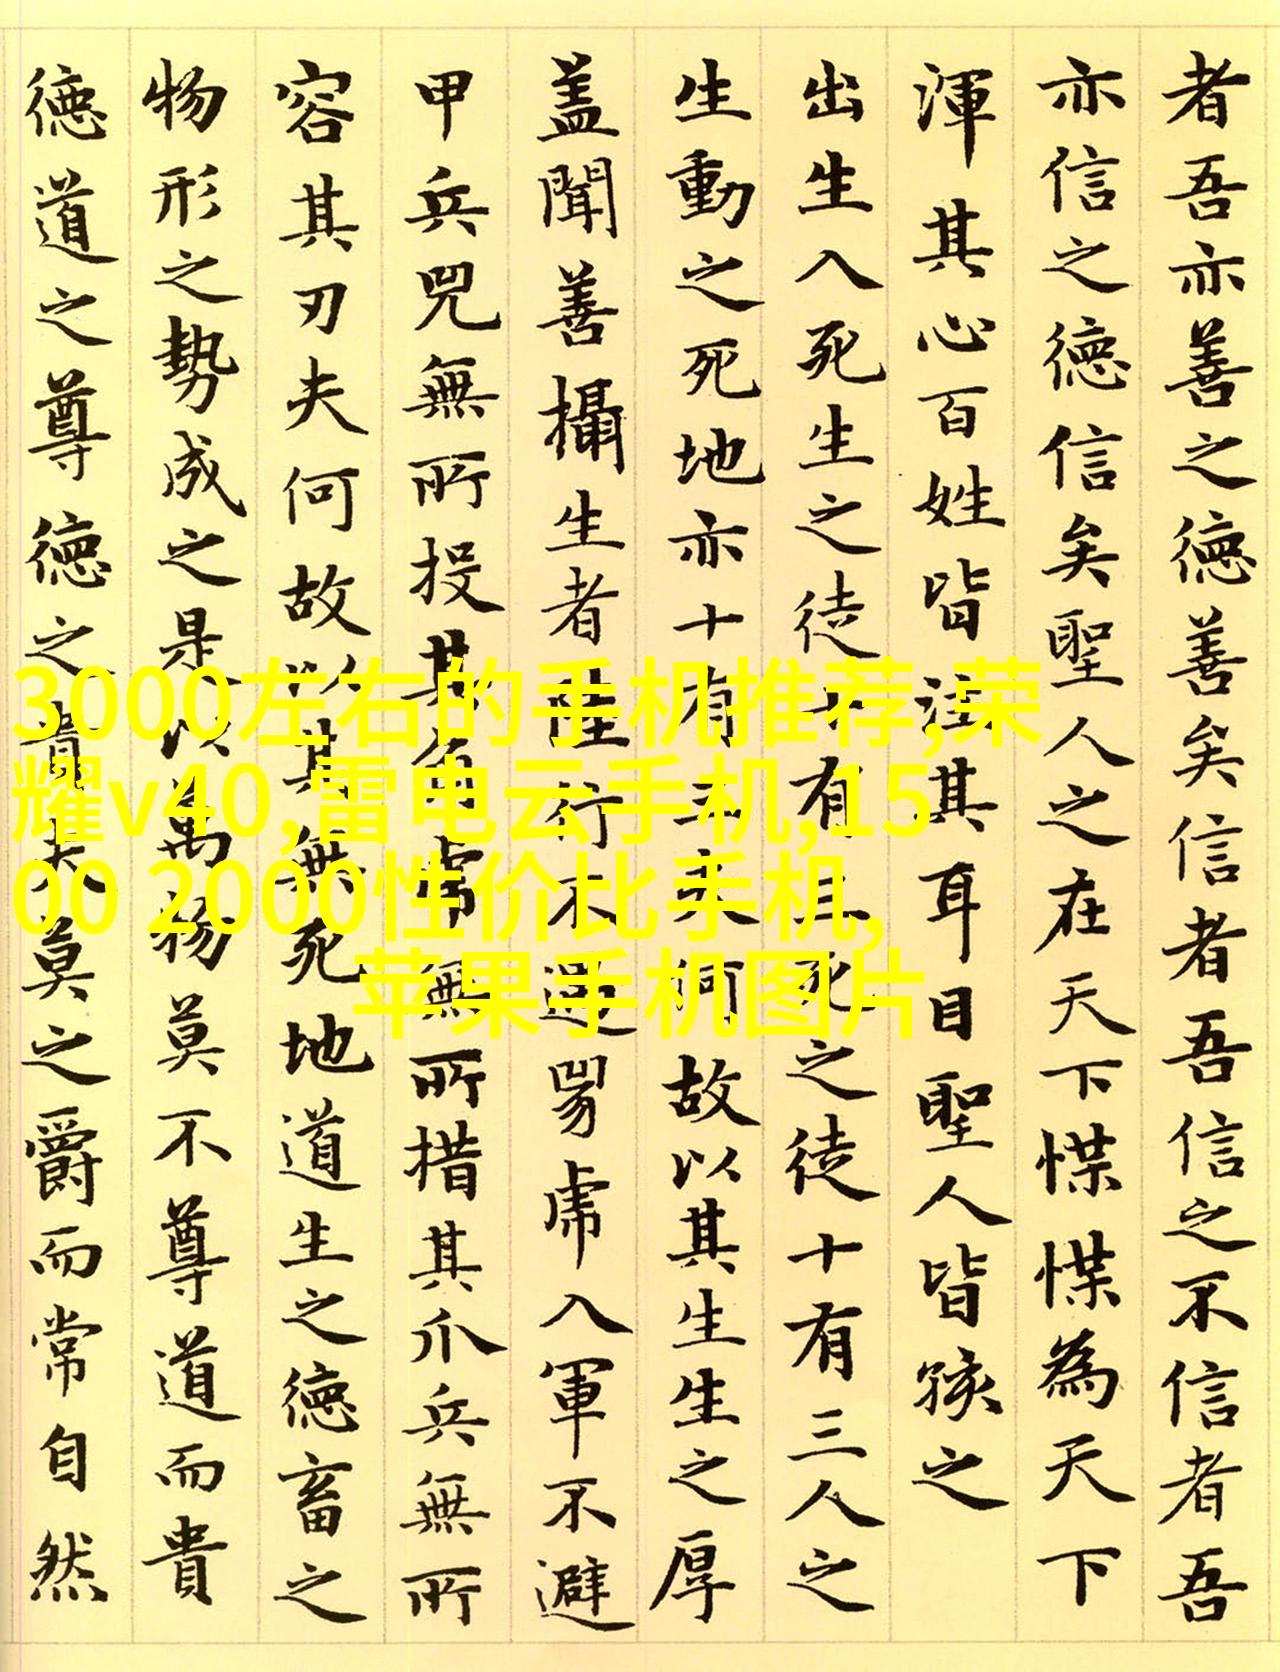 者吾亦善之德善矣信者吾信之不信者吾
亦信之德信矣聖人之在天下惵惵為天下
渾其心百姓皆注其耳目聖人皆孩之
出生入死生之徒十有三死之徒十有三人之
生動之死地亦十有三夫何故以其生生之厚
盖聞善攝生者陸行不遇兕虎入軍不避
甲兵兕無所投其角虎無所措其爪兵無所
容其刃夫何故以其無死地道生之德畜之
物形之勢成之是以萬物莫不尊道而貴
德道之尊德之貴夫莫之爵而常自然
3000左右的手机推荐,荣
耀v40,雷电云手机,15
00 2000性价比手机,
苹果手机图片